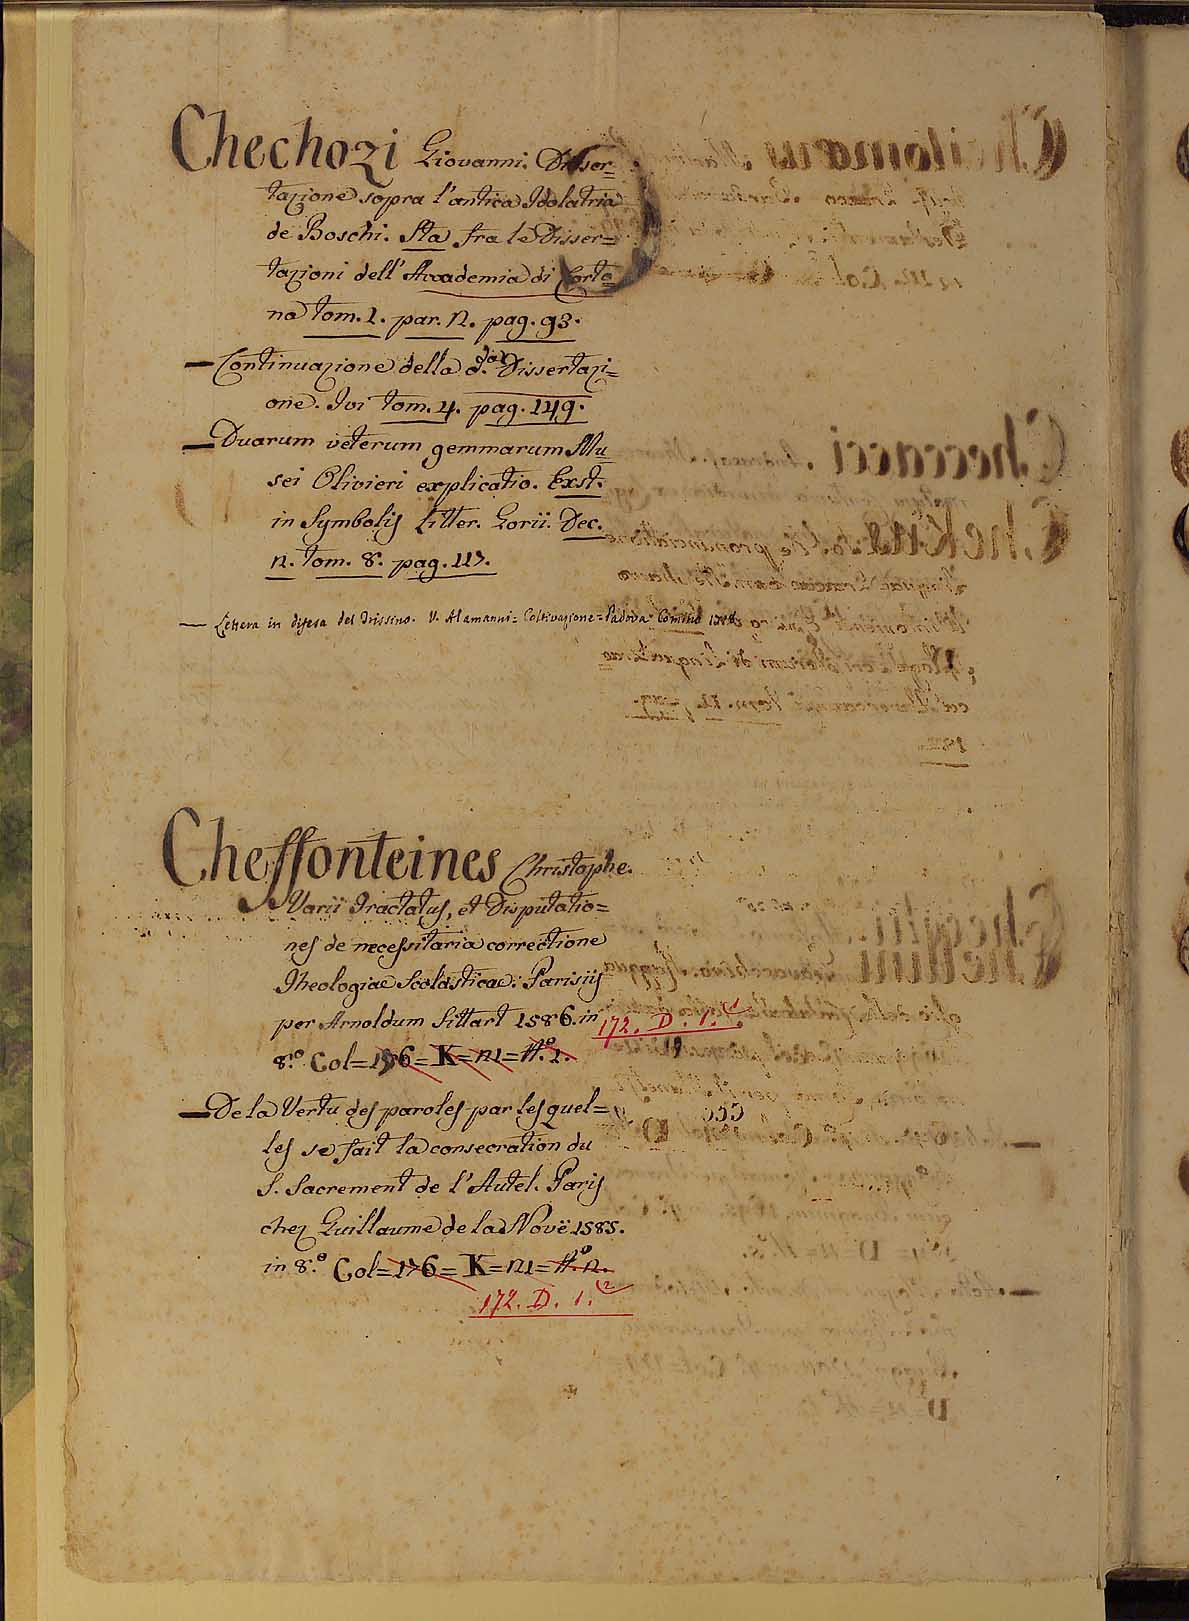 Chechozi Giovanni. Disser=
tazione sopra l'antica Idolatria
de Boschi. Sta fra le Disser=
tazioni dell'Accademia di Corto=
na tom. 1. par. 2. pag. 93.
— Continuazione della d.ta Dissertazi=
one. Ivi tom. 4. pag. 149.
— Duarum veterum gemmarum Mu=
sei Olivieri explicatio. Exst.
in Symbolis Litter. Gorii. Dec.
2. tom. 8. pag. 117.
— Lettera in difesa del Trissino. V. Alamanni = Coltivazione = Padova Comino 1718
Cheffonteines Christophe.
Varii Tractatus, et Disputatio=
nes de necessitaria correctione
Theologiae Scolasticae. Parisiis
per Arnoldum Sittart 1586. in
8.o Col=176=K=21=N.o 1.
172. D. 1.
— De la Vertu des paroles par lesquel=
les se fait la consecration du
S. Sacrement de l'Autel. Paris
chez Guillaume de la Novë 1585.
in 8.o Col=176=K=21=N.o 2.
172. D. 1. (2